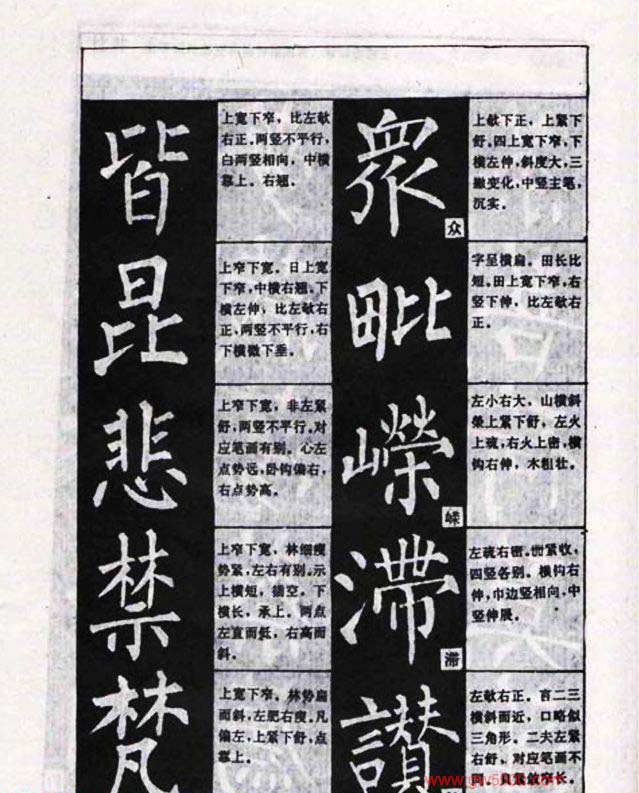 皆
上宽下窄，比左欹
右正.两竖不平行，
白两竖相向，中横
靠上。右翘.
昆
上窄下宽。日上宽
下窄，中横右翘.下
横左伸，比左欹右
正，两竖不平行，右
下横微下垂。
悲
上窄下宽，非左紧
舒，两竖不平行.对
应笔画有别。心左
点势远，卧钩偏右，
右点势高。
禁
上窄下宽，林细瘦
势紧，左右有别.示
上横短，插空。下
横长，承上。两点
左直而低，右高而
斜.
梵
上宽下窄。林势扁
而斜，左肥右瘦，凡
偏左，上紧下舒，点
靠上。
眾
众
上欹下正，上紧下
舒.四上宽下窄，下
横左伸，斜度大，三
撇变化，中竖主笔，
沉实。
毗
字呈横扁。田长比
短。田上宽下窄，右
竖下伸，比左欹右
正。
嶸
嵘
左小右大，山横斜
荣上紧下舒，左火
上疏，右火上密，横
钩右伸，木粗壮。
滯
滞
左疏右密。卌紧收，
四竖各别。横钩右
伸，巾边竖相向，中
竖伸展。
讃
左欹右正。言二三
横斜而近，口略似
三角形。二夫左紧
右舒，对应笔画不